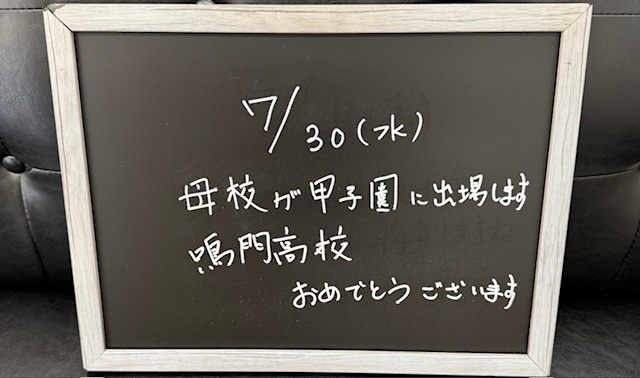 7/30(水)
母校が甲子園に出場します
鳴門高校
おめでとうございます